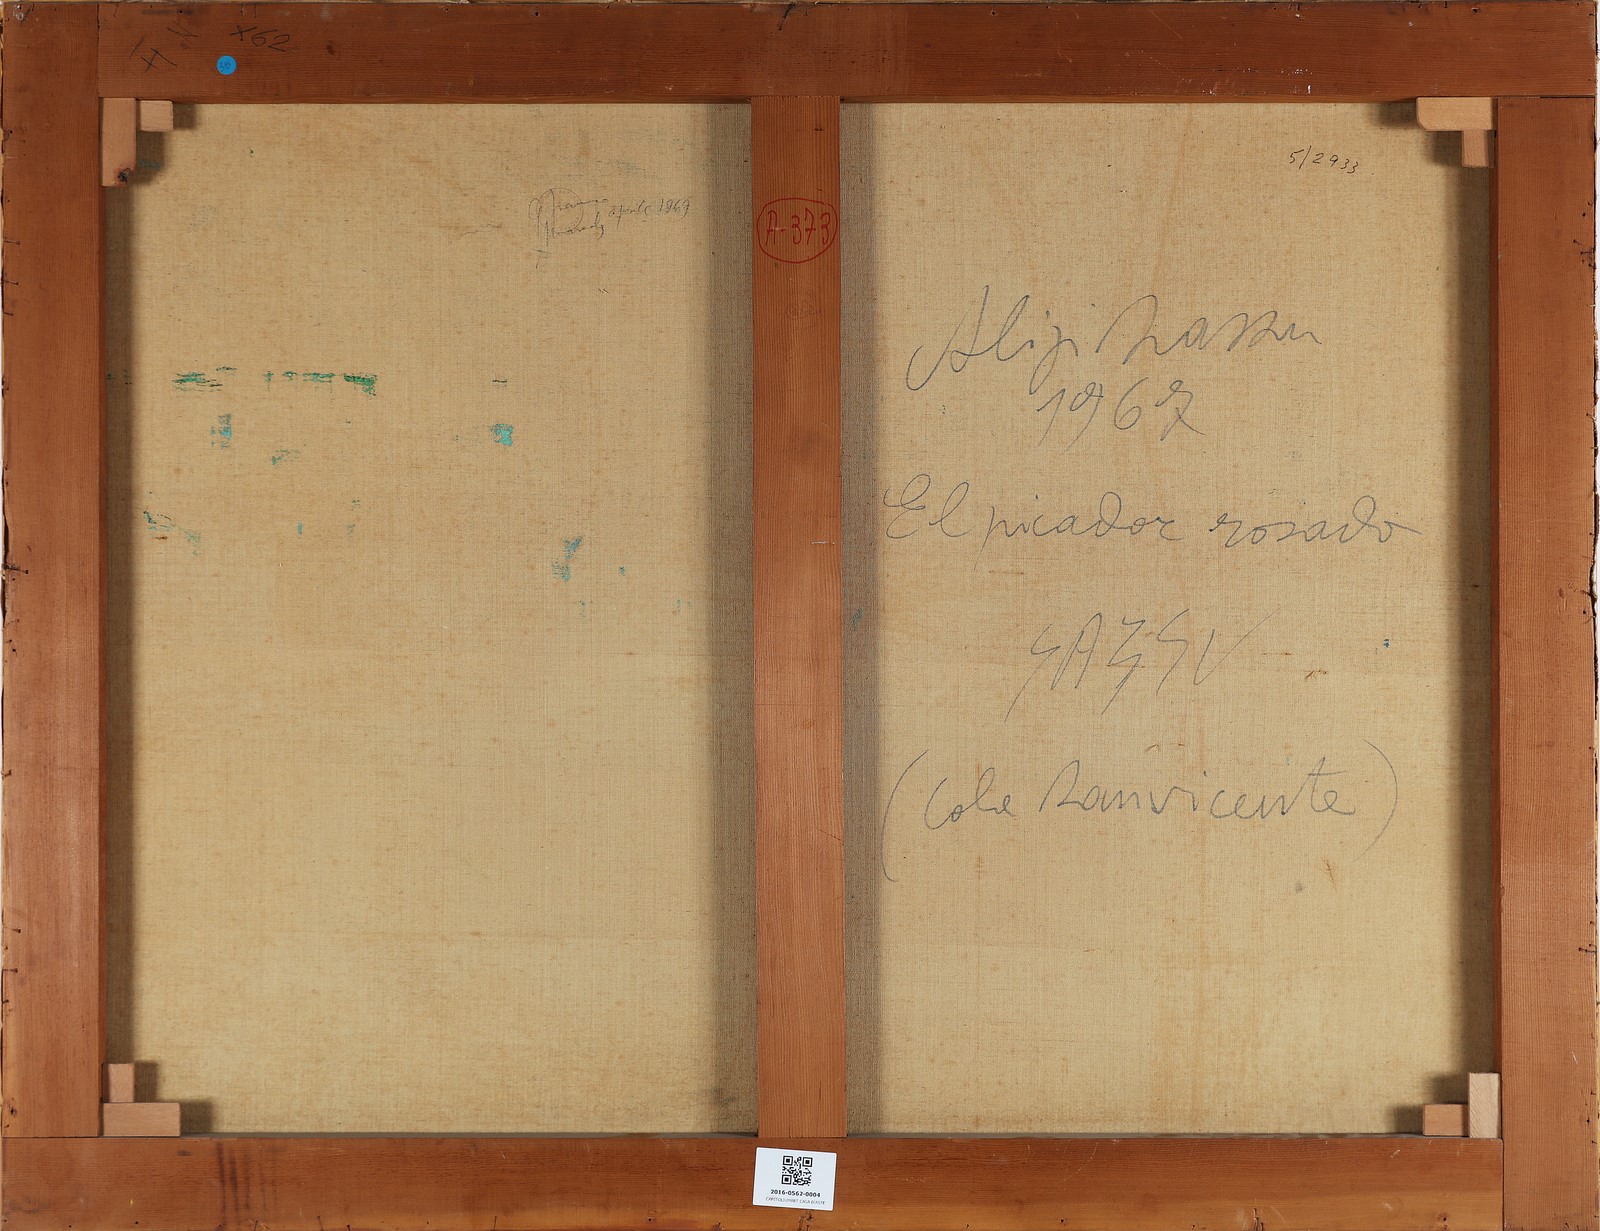 x62
5/2933
aprile 1969
A-373
Aligi Sassu
1967
El picador rosado
SASSU
(Cala Sanvicente)
2016-0562-0004